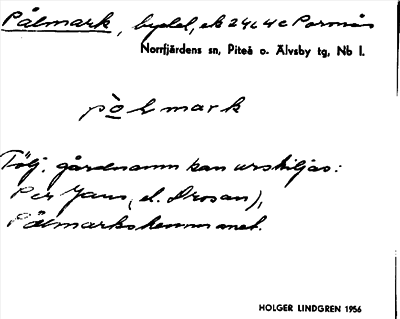 Pålmark, bydel, ek 24 L 4 c Porsnäs
Norrfjärdens sn, Piteå o. Älvsby tg, Nb l.
på̀lmark
Följ. gårdnamn kan urskiljas:
Per Jans, (el. Drosan),
Pålmarkshemmanet.
HOLGER LINDGREN 1956